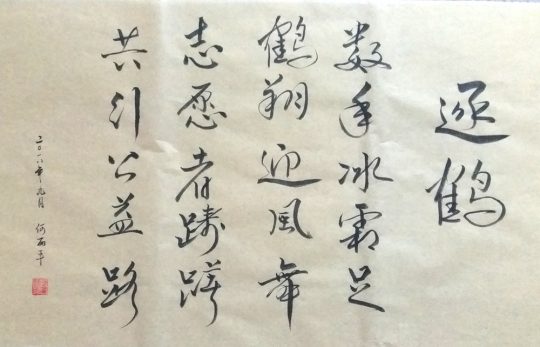 逐鹤
数年冰霜足
鹤翔迎風舞
志愿者踌躇
共引公益路
二〇一八年九月 何